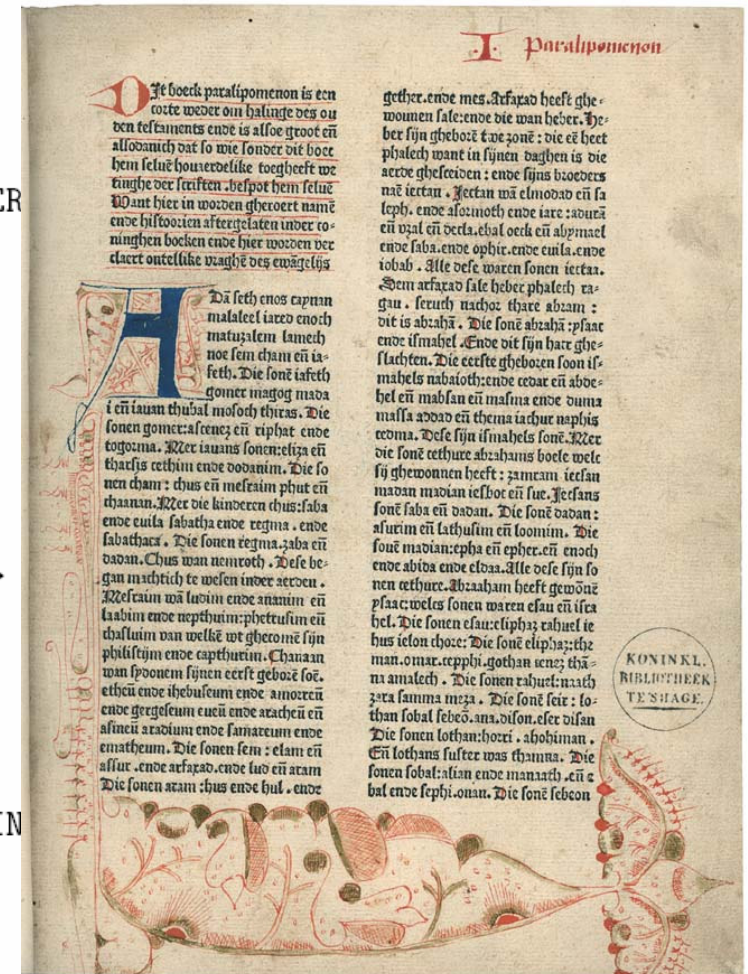 I Paralipomenon
DIt boeck paralipomenon is een
corte weder om halinge des ou
den testaments ende is alsoe groot eñ
allodanich dat so wie sonder dit boec
hem seluē houaerdelike toegheeft we
tinghe der scriften .bespot hem seluē
Want hier in worden gheroert namē
ende histoorien aftergelaten inder co-
ninghen boecken ende hier worden ver
claert ontellike vraghē des ewāgelijs
ADā seth enos caynan
malaleel iared enoch
matuzalem lamech
noe sem cham eñ ia-
feth. Die sonē iafeth
gomer magog mada
i eñ iauan thubal mosoch thiras. Die
sonen gomer:ascenez eñ riphat ende
togorma. Mer iauans sonen:eliza eñ
tharsis cethim ende dodanim. Die so
nen cham : chus eñ mesraim phut eñ
chaanan. Mer die kinderen chus:saba
ende euila sabatha ende regma . ende
sabathaca . Die sonen regma.zaba eñ
dadan. Chus wan nemroth . Dese be-
gan machtich te wesen inder aerden .
Mesraim wā ludim ende ananim eñ
laabim ende nepthuim:phetrusim eñ
chasluim van welkē wt ghecomē sijn
philistijm ende capthurim. Chanaan
wan sydonem sijnen eerst geborē soē.
etheū ende ihebuseum ende amorreū
ende gergeseum eueū ende aracheū eñ
asineū aradium ende samareum ende
ematheum. Die sonen sem : elam eñ
assur .ende arfaxad.ende lud eñ aram
Die sonen aram :hus ende hul . ende
gether.ende mes. Arfaxad heeft ghe-
wonnen sale:ende die wan heber. He-
ber sijn gheborē twe zonē : die eē heet
phalech want in sijnen daghen is die
aerde ghesceiden : ende sijns broeders
naē iectan . Jectan wā elmodad eñ sa
leph. ende asormoth ende iare :adurā
eñ vzal eñ decla.ebal oeck eñ abymael
ende saba.ende ophir.ende euila.ende
iobab . Alle dese waren sonen iectaa.
Sem arfaxad sale heber phalech ra-
gau . seruch nachor thare abram :
dit is abrahā . Die sonē abrahā :ysaac
ende ismahel . Ende dit sijn haer ghe-
slachten. Die eerste gheboren soon is-
mahels nabaioth:ende cedar eñ abde-
hel eñ mabsan eñ masma ende duma
massa adad eñ thema iachur naphis
cedma. Dese sijn ismahels sonē. Mer
die sonē cethure abrahams boele welc
sij ghewonnen heeft : zamram iecsan
madan madian iesboc eñ sue. Jecsans
sonē saba eñ dadan. Die sonē dadan :
asurim eñ lathusim eñ loomim. Die
sonē madian:epha eñ epher.eñ enoch
ende abida ende eldaa. Alle dese sijn so
nen cethure. Abraaham heeft gewōnē
ysaac:welcs sonen waren esau eñ isra
hel. Die sonen esau:eliphaz rahuel ie
hus ielon chore: Die sonē eliphaz:the
man.omar.sepphi.gothan senez thā-
na amalech . Die sonen rahuel:naath
zara samma meza . Die sonē seir : lo-
than sobal sebeō.ana.dison.eser disan
Die sonen lothan:horri . ahohiman .
Eñ lothans suster was thamna. Die
sonen sobal:alian ende manaath .eñ e
bal ende sephi.onan. Die sonē sebeon
KONINKL.
BIBLIOTHEEK
TE'SHAGE.